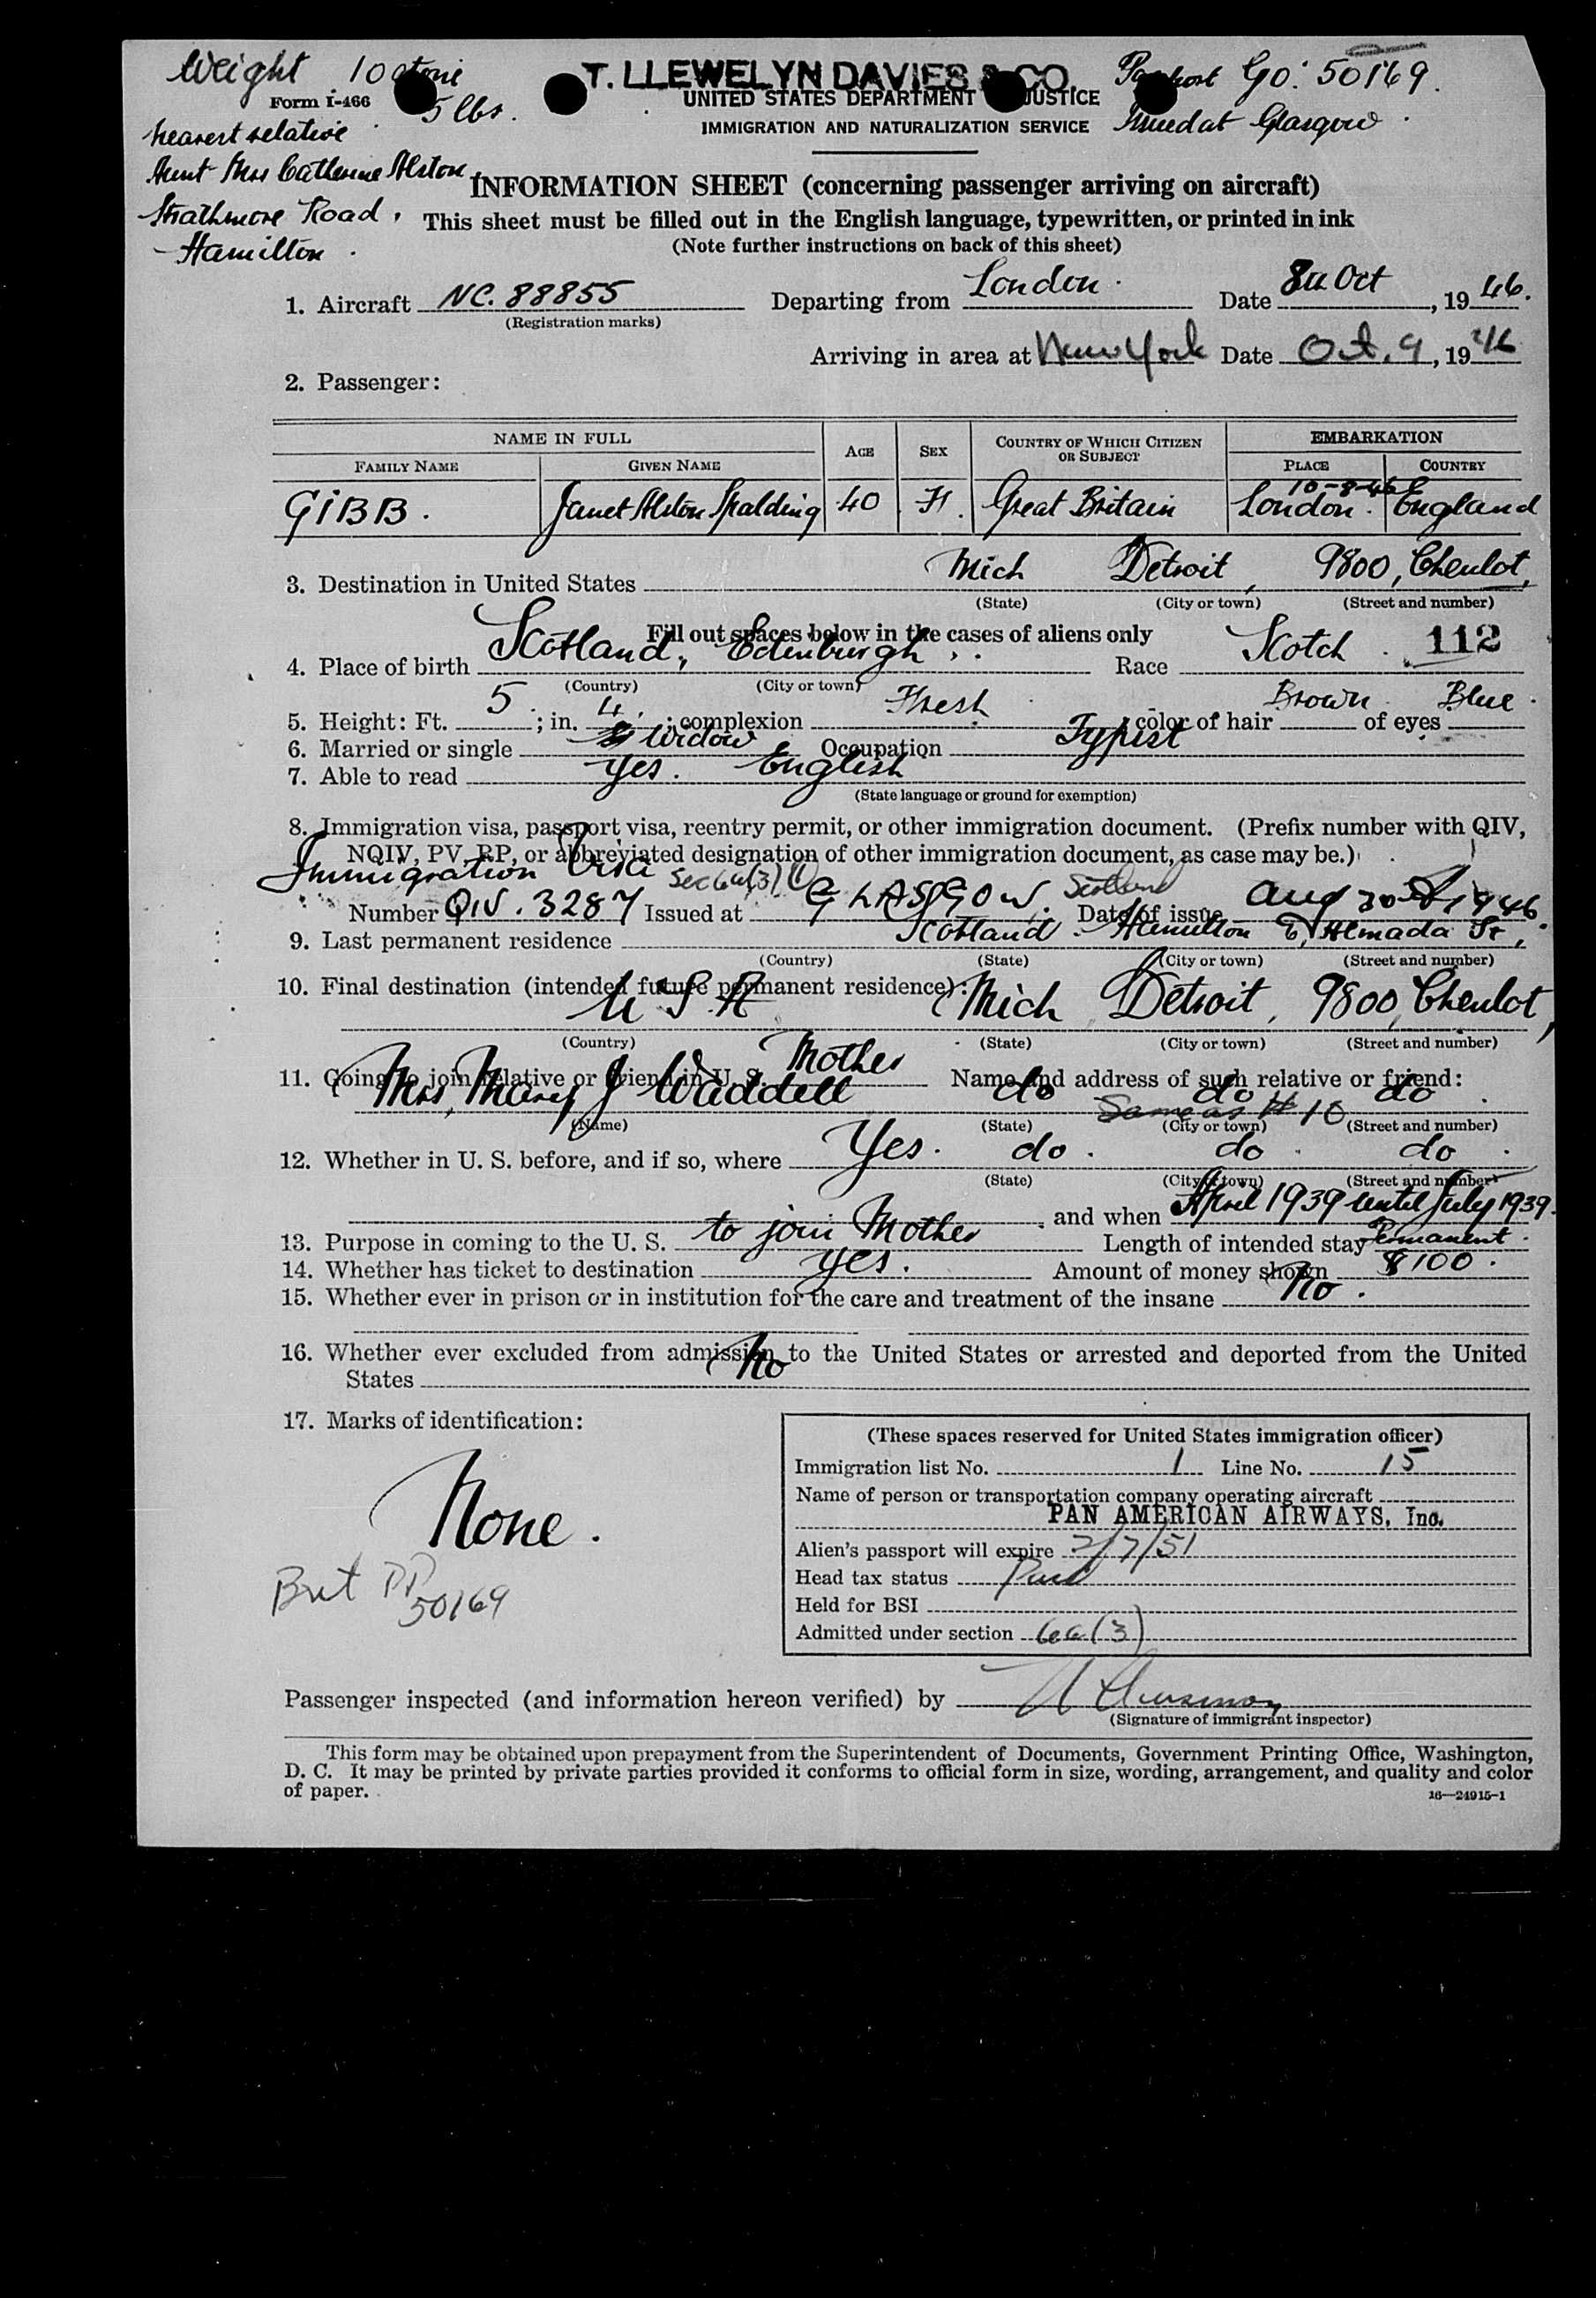 Weight 10 stone
5 lbs.
Form I-466
T. LLEWELYN DAVIES & CO.
UNITED STATES DEPARTMENT JUSTICE
IMMIGRATION AND NATURALIZATION SERVICE
Passport GO: 50169.
Issued at Glasgow.
nearest relative
Aunt Mrs Catherine Alston
Strathmore Road,
Hamilton.
INFORMATION SHEET (concerning passenger arriving on aircraft)
This sheet must be filled out in the English language, typewritten, or printed in ink
(Note further instructions on back of this sheet)
1. Aircraft NC. 88855 Departing from London. Date 8th Oct, 19 46.
(Registration marks)
Arriving in area at New York Date Oct. 9, 19 46
2. Passenger:
NAME IN FULL AGE SEX COUNTRY OF WHICH CITIZEN OR SUBJECT EMBARKATION
FAMILY NAME GIVEN NAME PLACE COUNTRY
10-8-46
GIBB. Janet Alston Spalding 40 F. Great Britain London. England
3. Destination in United States Mich Detroit, 9800, Chenlot,
(State) (City or town) (Street and number)
Fill out spaces below in the cases of aliens only
4. Place of birth Scotland, Edinburgh. Race Scotch. 112
(Country) (City or town)
5. Height: Ft. 5; in. 4; complexion Fresh; color of hair Brown of eyes Blue.
6. Married or single Widow Occupation Typist
7. Able to read Yes. English
(State language or ground for exemption)
8. Immigration visa, passport visa, reentry permit, or other immigration document. (Prefix number with QIV,
NQIV, PV, RP, or abbreviated designation of other immigration document, as case may be.)
Immigration Visa Sec 6a(3) (1)
Number QIV. 3287 Issued at GLASGOW. Scotland Date of issue Aug 20 1946
9. Last permanent residence Scotland. Hamilton 9, Almada St,
(Country) (State) (City or town) (Street and number)
10. Final destination (intended future permanent residence):
U S A Mich Detroit, 9800, Chenlot,
(Country) (State) (City or town) (Street and number)
11. Going to join relative or friend in U. S. Mother Name and address of such relative or friend:
Mrs, Mary J Waddell do do do.
Same as # 10
(Name) (State) (City or town) (Street and number)
12. Whether in U. S. before, and if so, where Yes. do. do. do.
(State) (City or town) (Street and number)
and when April 1939 until July 1939.
13. Purpose in coming to the U. S. to join Mother Length of intended stay Permanent.
14. Whether has ticket to destination Yes. Amount of money shown $100.
15. Whether ever in prison or in institution for the care and treatment of the insane No.
16. Whether ever excluded from admission to the United States or arrested and deported from the United
States No
17. Marks of identification:
None.
Brit PP
50169
(These spaces reserved for United States immigration officer)
Immigration list No. 1 Line No. 15
Name of person or transportation company operating aircraft
PAN AMERICAN AIRWAYS, Inc.
Alien's passport will expire 2/7/51
Head tax status Paid
Held for BSI
Admitted under section 6a(3)
Passenger inspected (and information hereon verified) by
(Signature of immigrant inspector)
This form may be obtained upon prepayment from the Superintendent of Documents, Government Printing Office, Washington,
D. C. It may be printed by private parties provided it conforms to official form in size, wording, arrangement, and quality and color
of paper.
16—24915-1